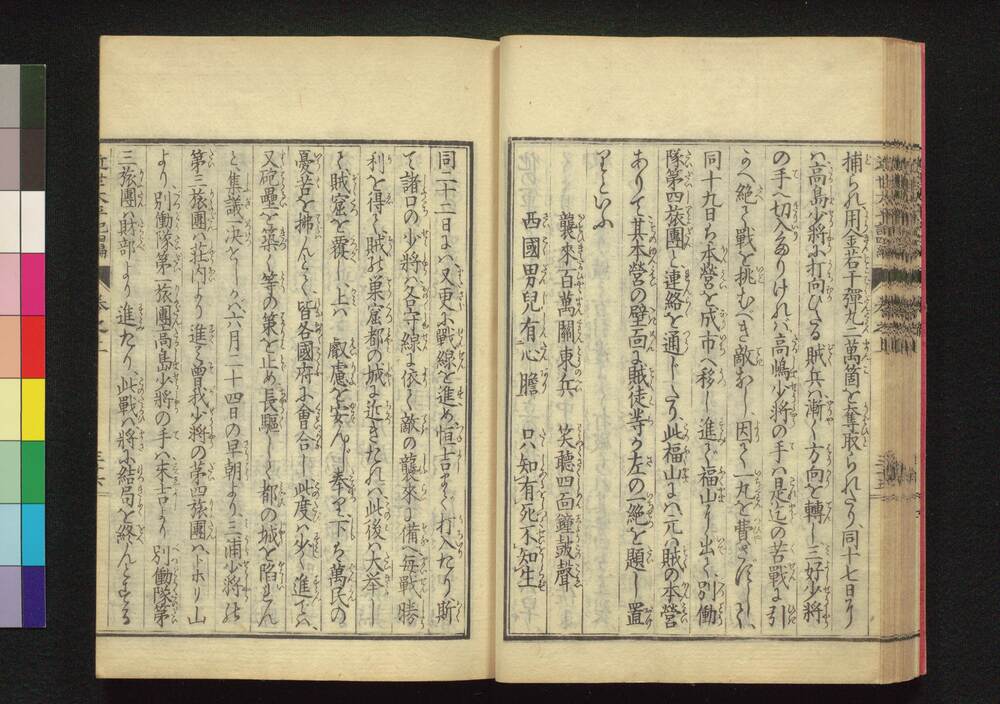 捕られ用金若干彈丸二萬箇を奪取られたり、同十七日に
ハ高島少將に打向ひたる賊兵ハ漸く方向を轉し三好少將
の手へ切入ありけれバ高嶋少將の手ハ是迄の苦戰に引
かへ絶て戰を挑むべき敵なし、因て一丸を費さずして
同十九日ち本營を成市へ移し進で福山に出で別働
隊第四旅團と連絡を通じたり、此福山にハ元ハ賊の本營
ありて其本營の壁面に賊徒等が左の一絶を題し置
りといふ
襲來百萬關東兵　笑聽四面鐘鼓聲
西國男兒有心膽　只知有死不知生
同二十二日にハ又更に戰線を進め恒吉まで打入たり、斯
て諸口の少將ハ各守線に依て敵の襲來に備へ毎戰勝
利を得て賊の巣窟都の城に近きたれバ、此後ハ大举して
て賊窟を覆し、上ハ叡慮を安んじ奉り、下ち萬民の
憂苦を拂んとて、皆各國府に會合し此度ハ少く進てハ、
又砲壘を築く等の策を止め長驅して都の城を陷れん
と集議一決をしかバ六月二十四日の早朝より、三浦少將の
第三旅團ハ荘内より進み曽我少將の第四旅團ハトホリ山
より、別働隊第一旅團高島少將の手ハ末吉より　別働隊第
三旅團ハ財部より進たり、此戰ハ將に結局を終んとする
近世太平記四編
卷之二
三十六